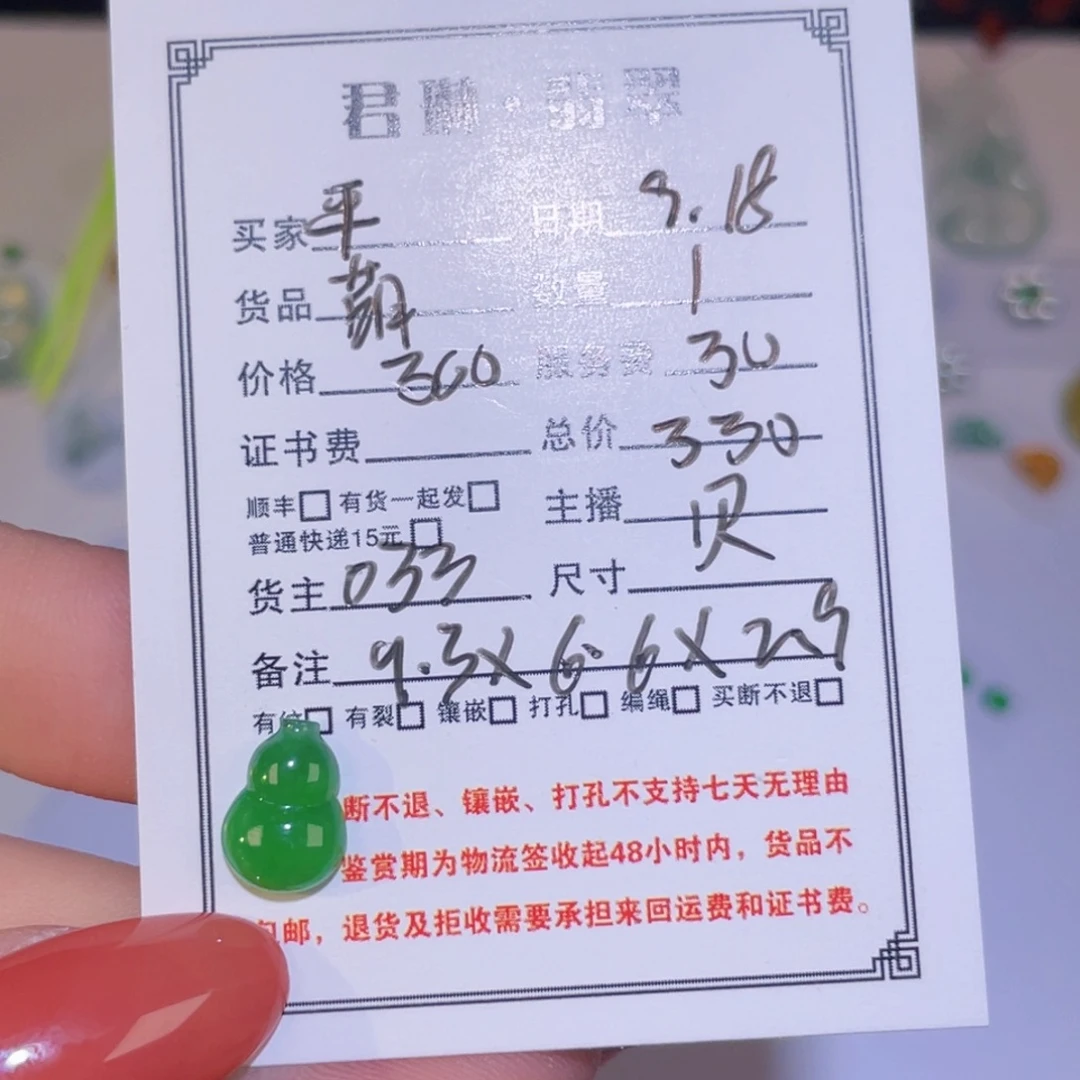 君琳·翡翠
买家 平 日期 9.18
货品 葫 数量 1
价格 300 服务费 30
证书费 总价 330
顺丰 有货一起发 主播 贝
普通快递15元
货主 033 尺寸
备注 9.3X6.6X2.9
有纹 有裂 镶嵌 打孔 编绳 买断不退
断不退、镶嵌、打孔不支持七天无理由
鉴赏期为物流签收起48小时内，货品不
包邮，退货及拒收需要承担来回运费和证书费。